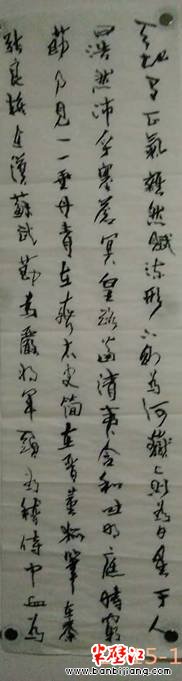 天地有正氣雜然賦流形下則為河嶽上則為日星于人
曰浩然沛乎塞蒼冥皇路當清夷含和吐明庭時窮
節乃見一一垂丹青在齊太史简在晉董狐筆在秦
張良椎在漢蘇武節為嚴將軍頭為嵇侍中血為
半壁江
5-1
www.banbijiang.com